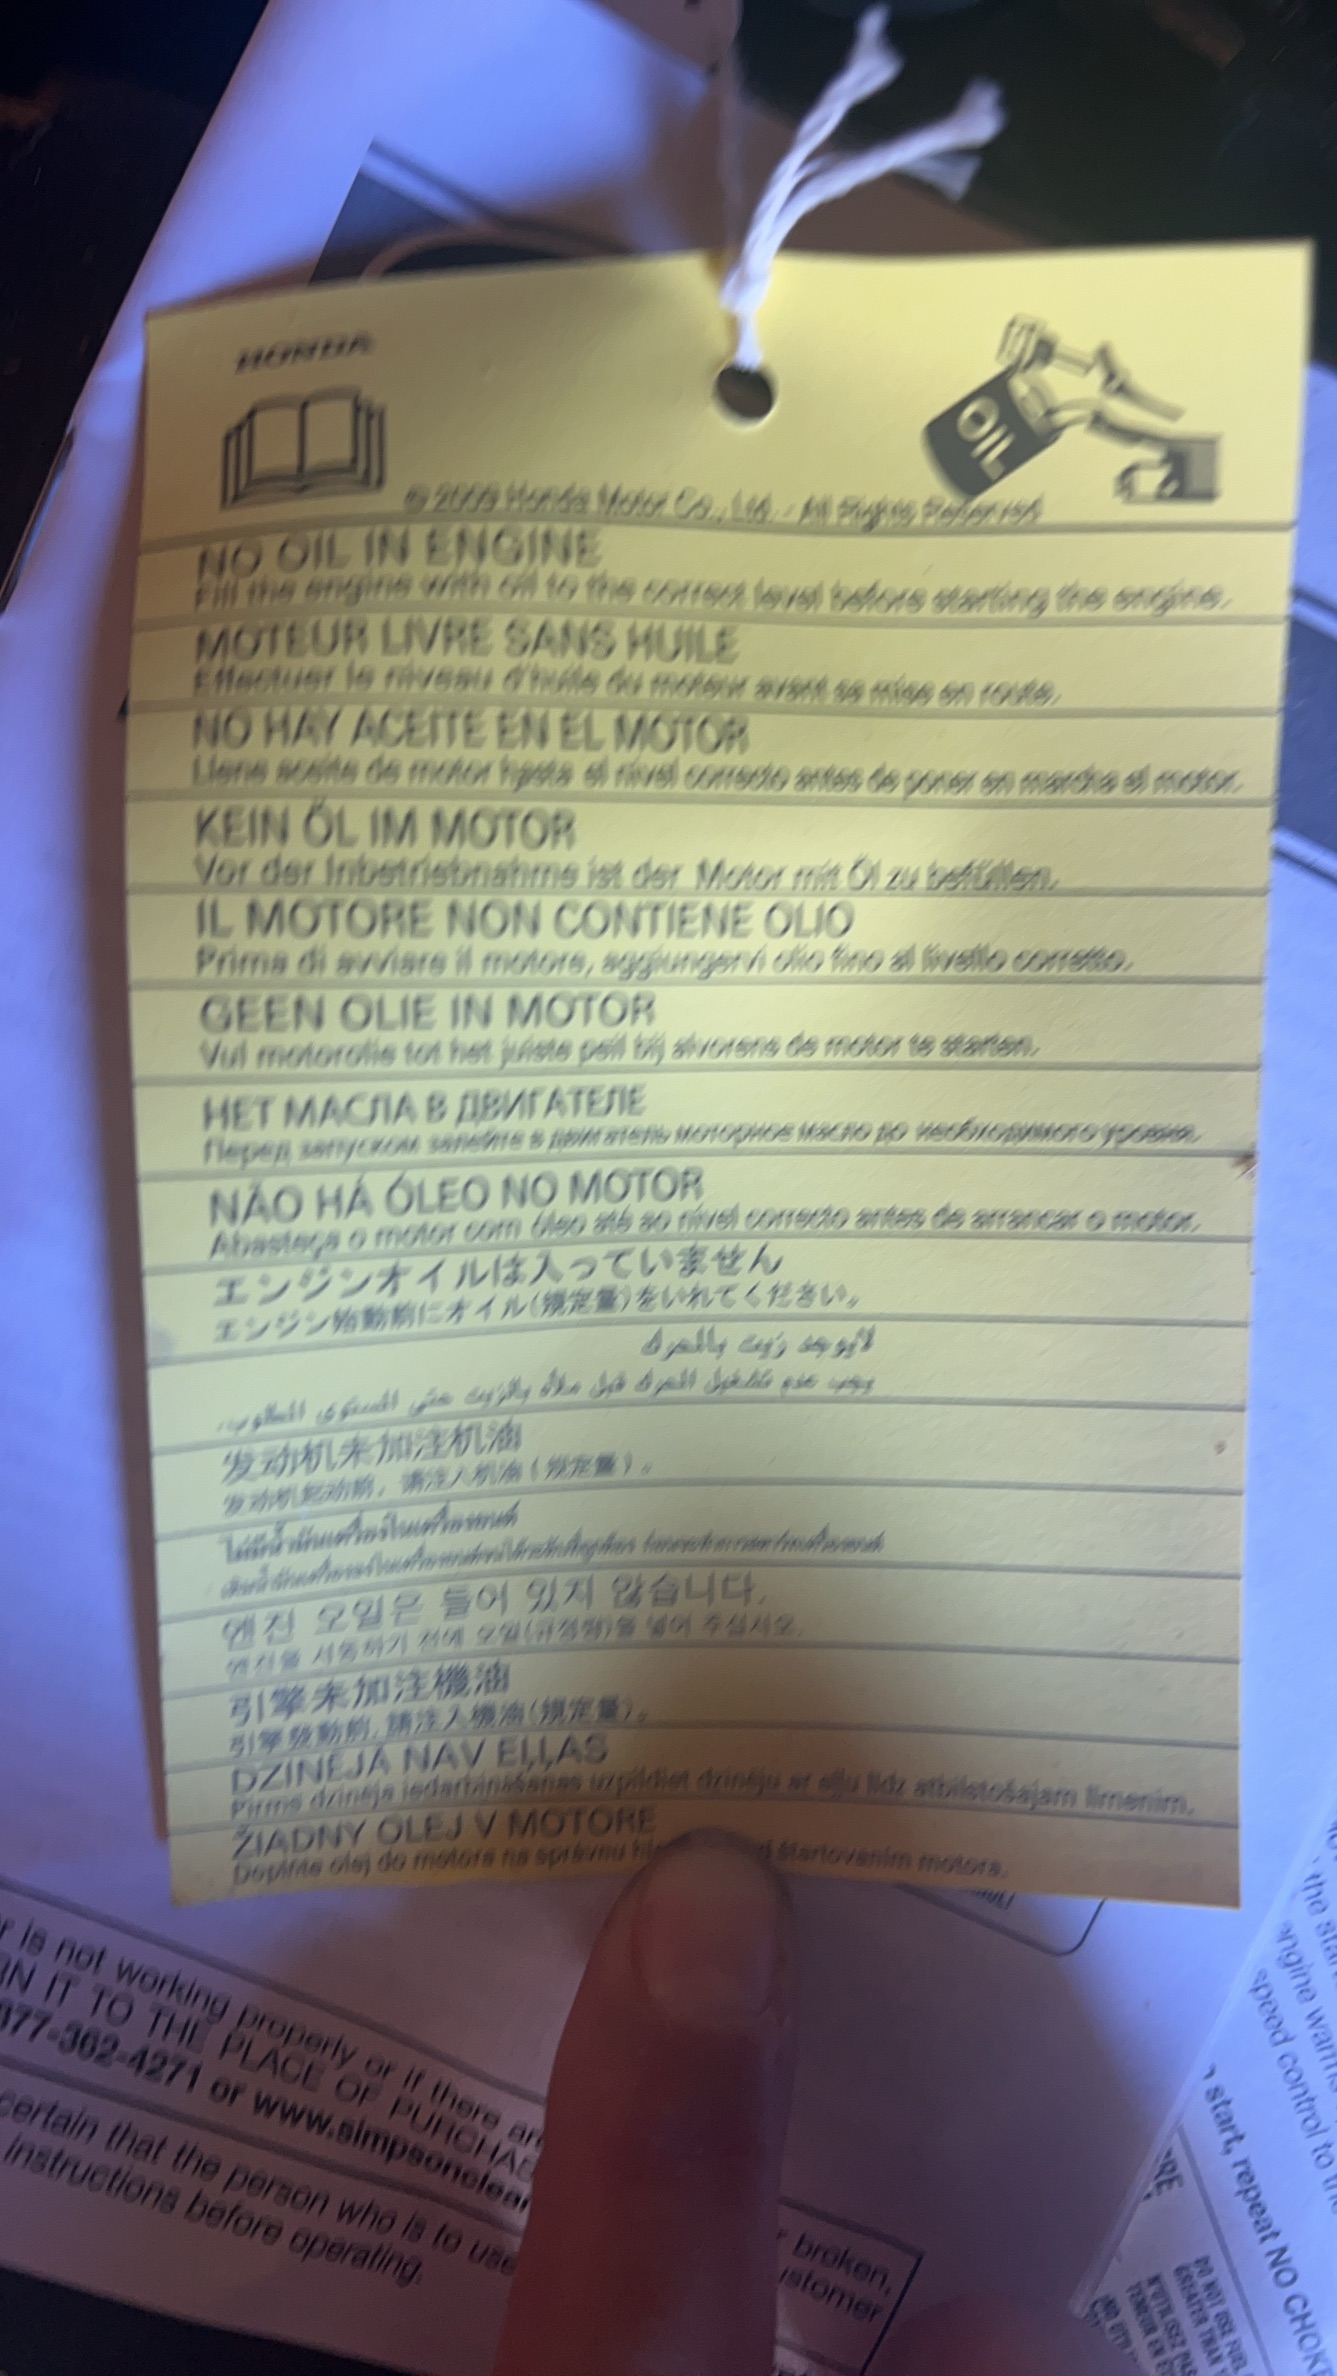 HONDA
OIL
© 2009 Honda Motor Co., Ltd. - All Rights Reserved
NO OIL IN ENGINE
Fill the engine with oil to the correct level before starting the engine.
MOTEUR LIVRE SANS HUILE
Effectuer le niveau d'huile du moteur avant sa mise en route.
NO HAY ACEITE EN EL MOTOR
Llene aceite de motor hasta el nivel correcto antes de poner en marcha el motor.
KEIN ÖL IM MOTOR
Vor der Inbetriebnahme ist der Motor mit Öl zu befüllen.
IL MOTORE NON CONTIENE OLIO
Prima di avviare il motore, aggiungervi olio fino al livello corretto.
GEEN OLIE IN MOTOR
Vul motorolie tot het juiste peil bij alvorens de motor te starten.
НЕТ МАСЛА В ДВИГАТЕЛЕ
Перед запуском залейте в двигатель моторное масло до необходимого уровня.
NÃO HÁ ÓLEO NO MOTOR
Abasteça o motor com óleo até ao nível correcto antes de arrancar o motor.
エンジンオイルは入っていません
エンジン始動前にオイル(規定量)をいれてください。
لايوجد زيت بالمحرك
المحرك قبل ملأه بالزيت حتى المستوى المطلوب.
发动机未加注机油
发动机起动前，请注入机油（规定量）。
ไม่มีน้ำมันเครื่องในเครื่องยนต์
엔진 오일은 들어 있지 않습니다.
엔진을 시동하기 전에 오일(규정량)을 넣어 주십시오.
引擎未加注機油
引擎發動前,請注入機油(規定量)。
DZINĒJĀ NAV EĻĻAS
Pirms dzinēja iedarbināšanas uzpildiet dzinēju ar eļļu līdz atbilstošajam līmenim.
ŽIADNY OLEJ V MOTORE
Doplňte olej do motora na správnu štartovaním motora.
is not working properly or if there
IT TO THE PLACE OF PURCHAS
77-362-4271 or www.simpsonclea
certain that the person who is to use
instructions before operating.
broken,
ustomer
the star
engine warm
speed control to the
start, repeat NO CHOK
DO NOT USE FUEL
GREATER THAN
N'UTILISEZ
TENEUR EN